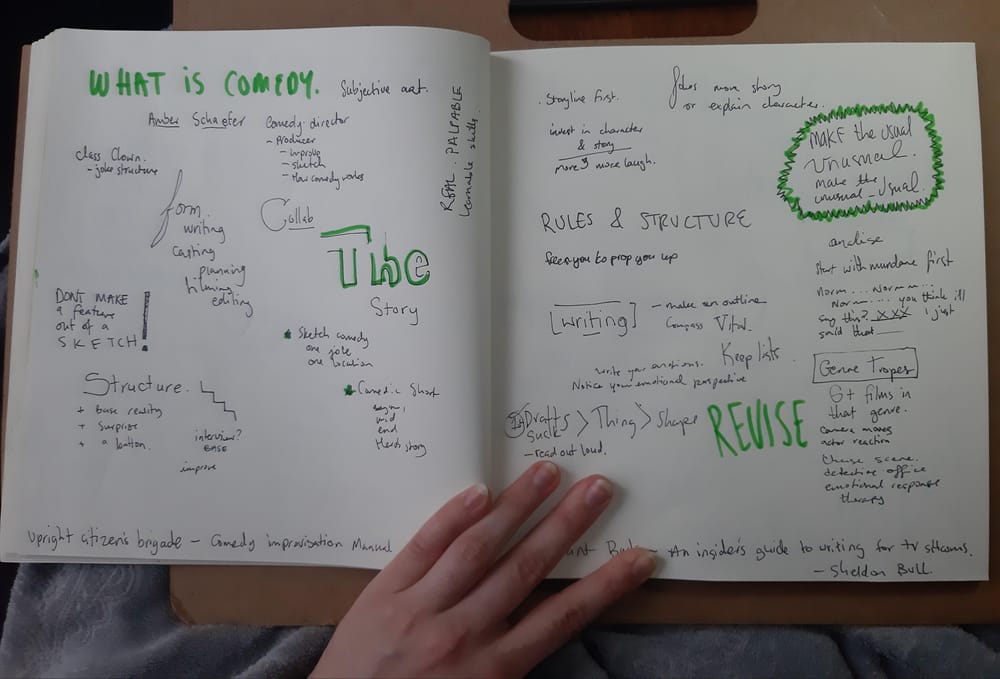 WHAT iS COMEDY. Subjective art.
Amber Schaefer
Comedy director
- Producer
- improv
- sketch
- How comedy works
REAL. PALPABLE
learnable skills.
Class Clown.
- joke structure
form.
writing
casting
planning
filming
editing
Collab
The
Story
DONT MAKE
a feature
out of a
SKETCH!
Sketch comedy
one joke
one location
Structure.
+ base reality
+ surprise
+ a button.
interview?
BASE
improve
Comedic Short
begin,
mid
end
Heros story
Upright citizen's brigade - Comedy improvisation Manual
. Storyline first.
Jokes move story
or explain character.
invest in character
& story
more & more laugh.
MAKE the usual
unusual.
make the
unusual - usual.
RULES & STRUCTURE
frees you to prop you up
analise
start with mundane first
norm ... Norm ...
Norm ... you think ill
say this? XXX I just
said that
[writing] - make an outline
Compass Vital.
Keep lists.
write your emotions.
Notice your emotional perspective
Genre Tropes
6+ films in
that genre.
camera moves
actor reaction
Chase scene.
detective office
emotional response
therapy
1st Drafts > Thing > Shape REVISE
suck
- read out loud.
- An insider's guide to writing for tv sitcoms.
- Sheldon Bull.